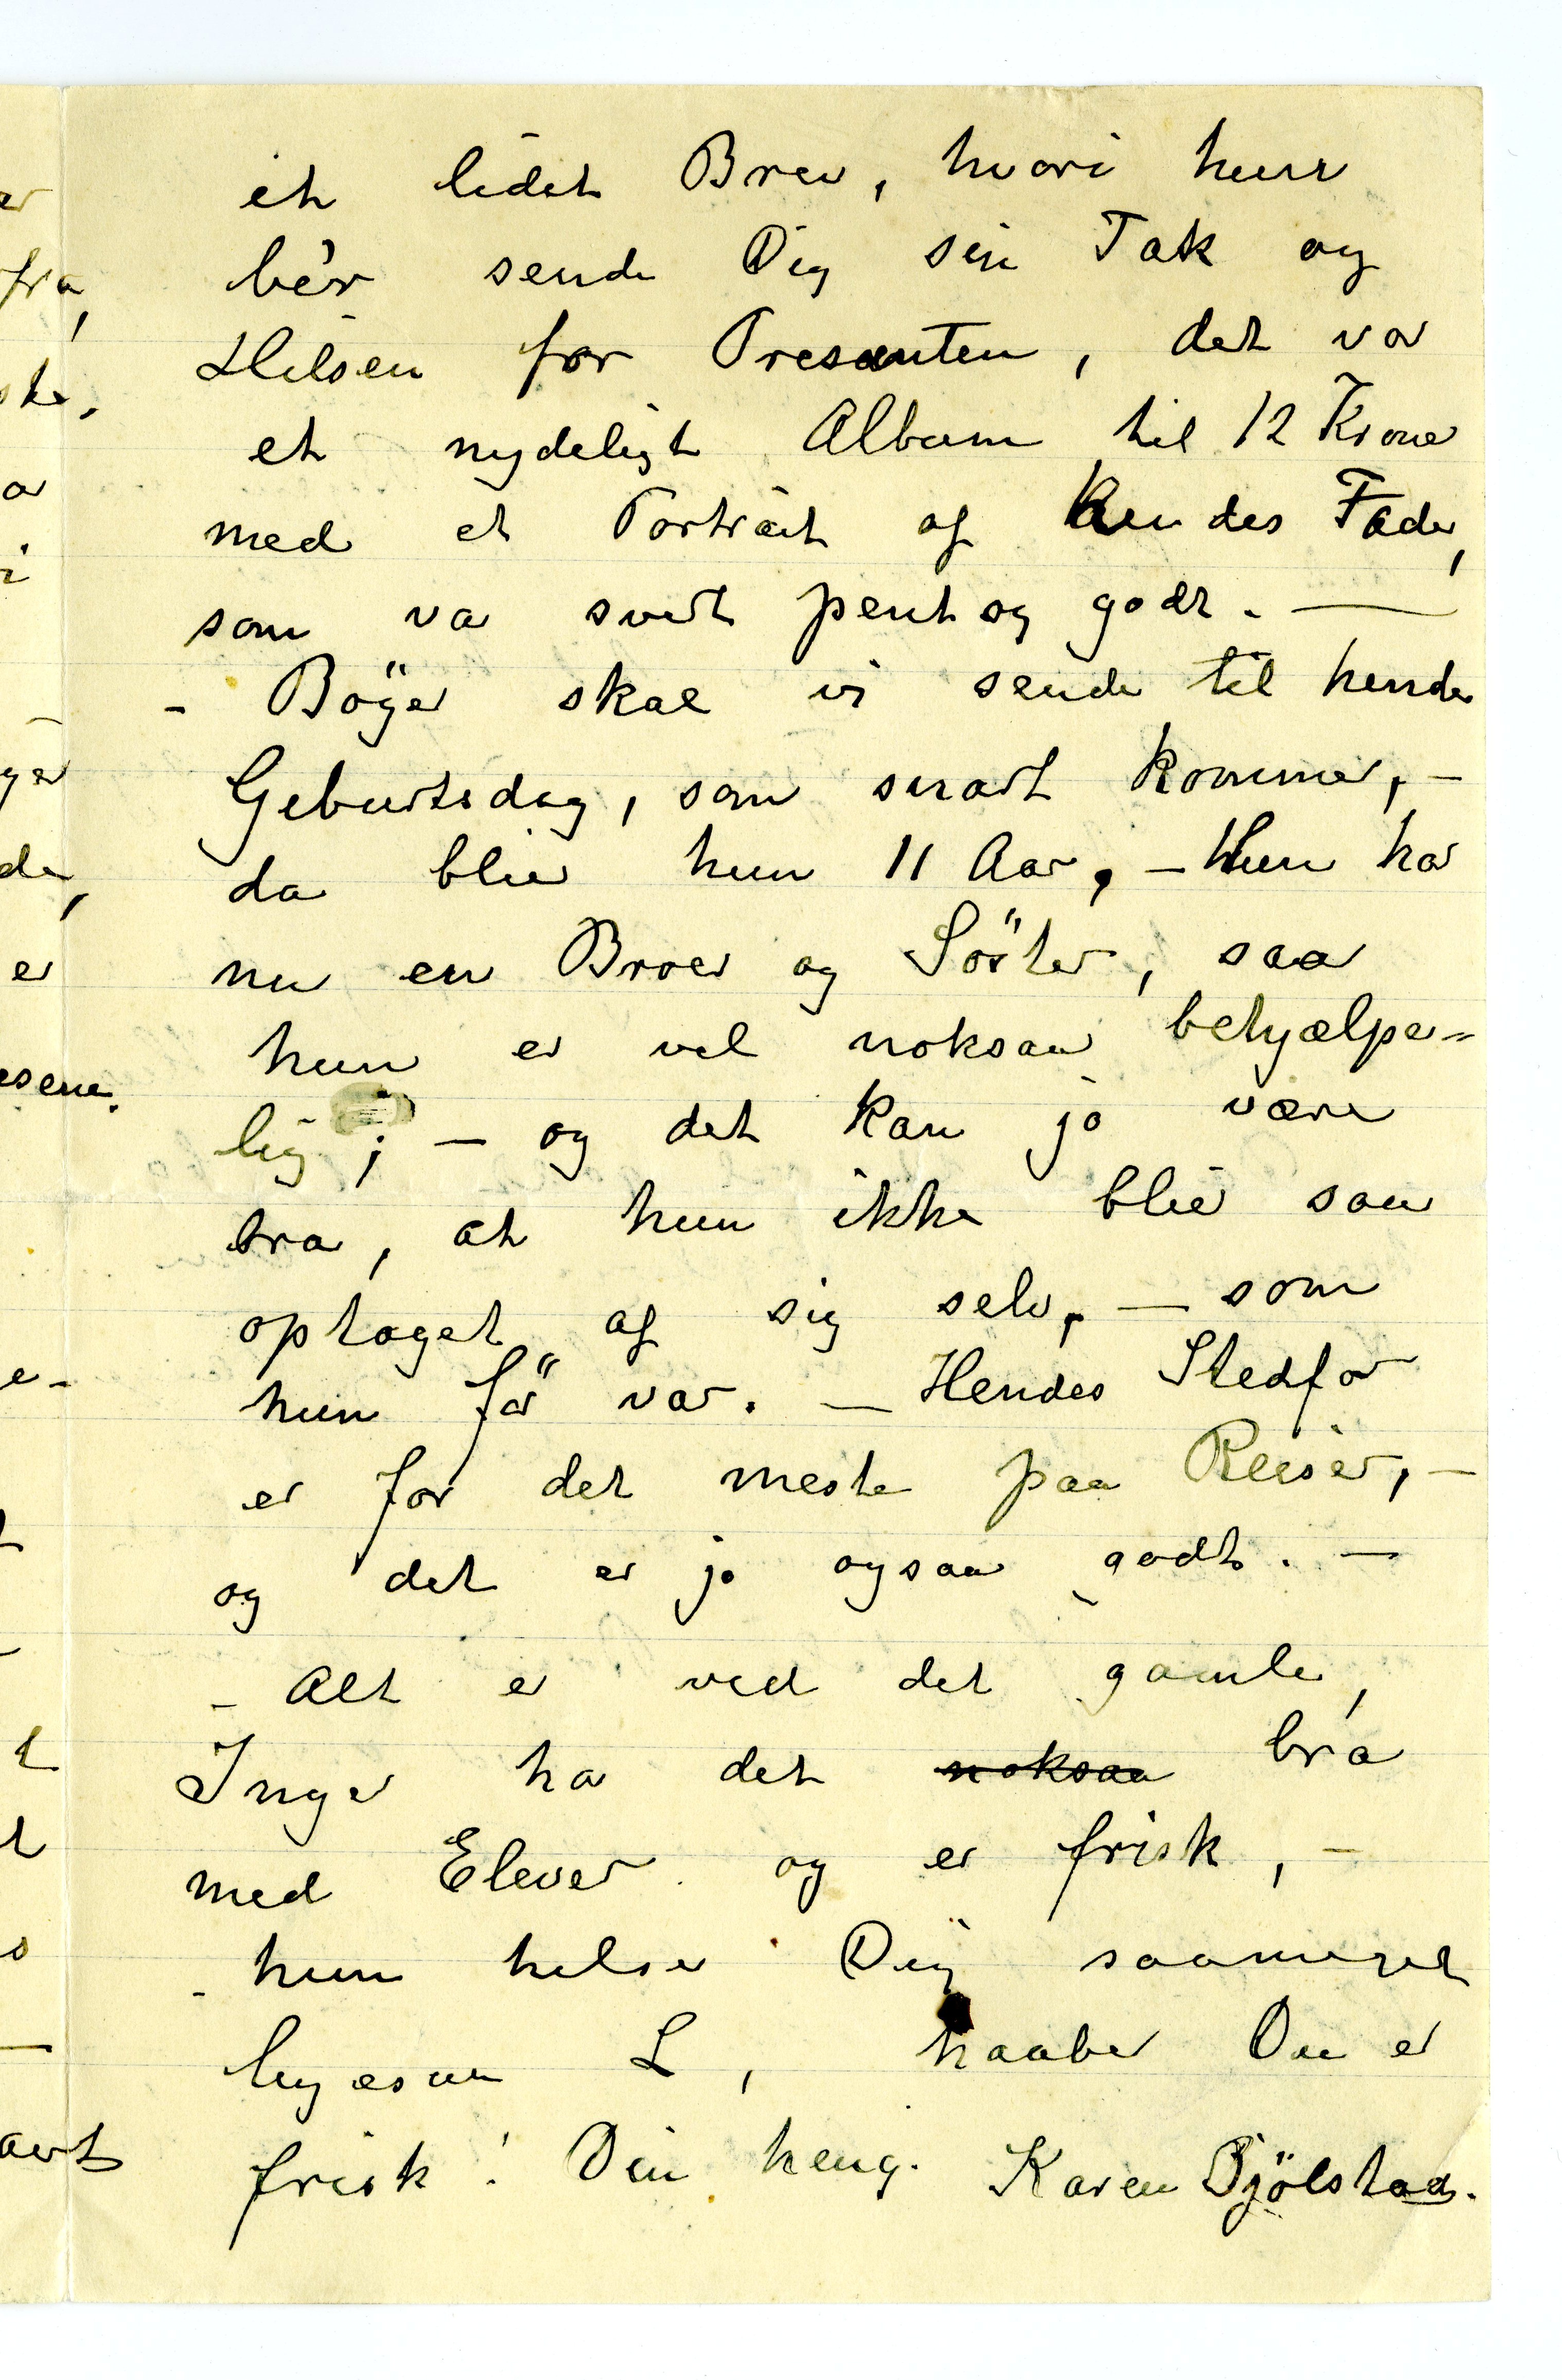 et lidet Brev, hvori hun
bér sende Dig sin Tak og
Hilsen for Presanten, det var
et nydeligt Album til 12 Kroner
med et Porträt af hendes Fader,
som var svært pent og godt. —
- Böger skal vi sende til hendes
Geburtsdag, som snart kommer, -
da bliver hun 11 Aar, - Hun har
nu en Broer og Söster, saa
hun er vel noksaa behjælpe-
lig; - og det kan jo være
bra, at hun ikke bliver saa
optaget af sig selv, - som
hun för var. - Hendes Stedfar
er for det meste paa Reiser, -
og det er jo ogsaa godt. -
- Alt er ved det gamle,
Inger har det noksaa bra
med Elever og er frisk, -
- hun hilser Dig saameget
ligesaa L, haaber Du er
frisk! Din heng. Karen Bjölstad.